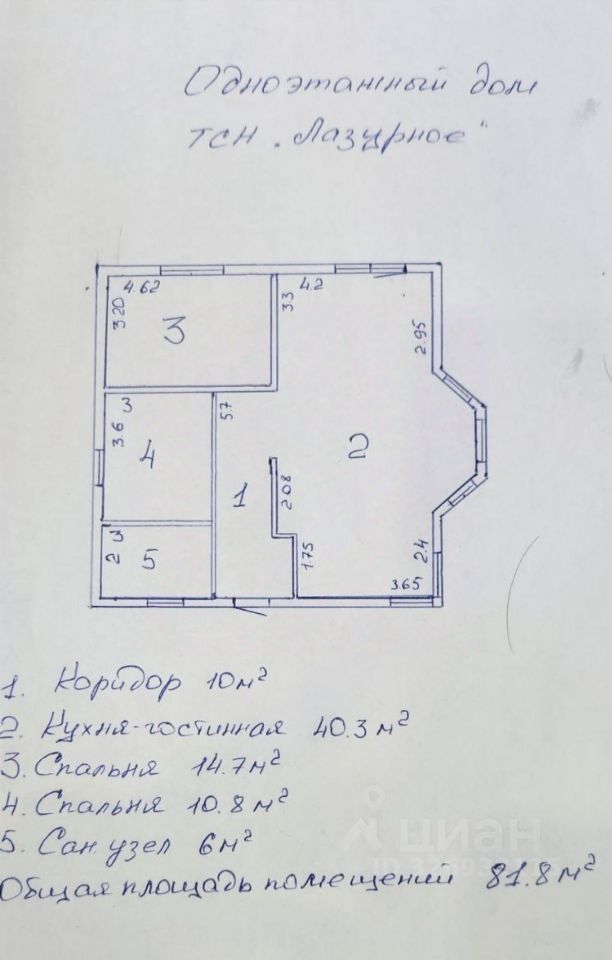 Одноэтажный дом
ТСН „Лазурное"
4.62
3.20
3
33
4.2
2.95
3
3.6
4
5.7
1
2
2.08
1.75
2.4
3.65
3
2
5
1. Коридор 10 м²
2. Кухня-гостинная 40.3 м²
3. Спальня 14.7 м²
4. Спальня 10.8 м²
5. Сан. узел 6 м²
Общая площадь помещений 81.8 м²
циан